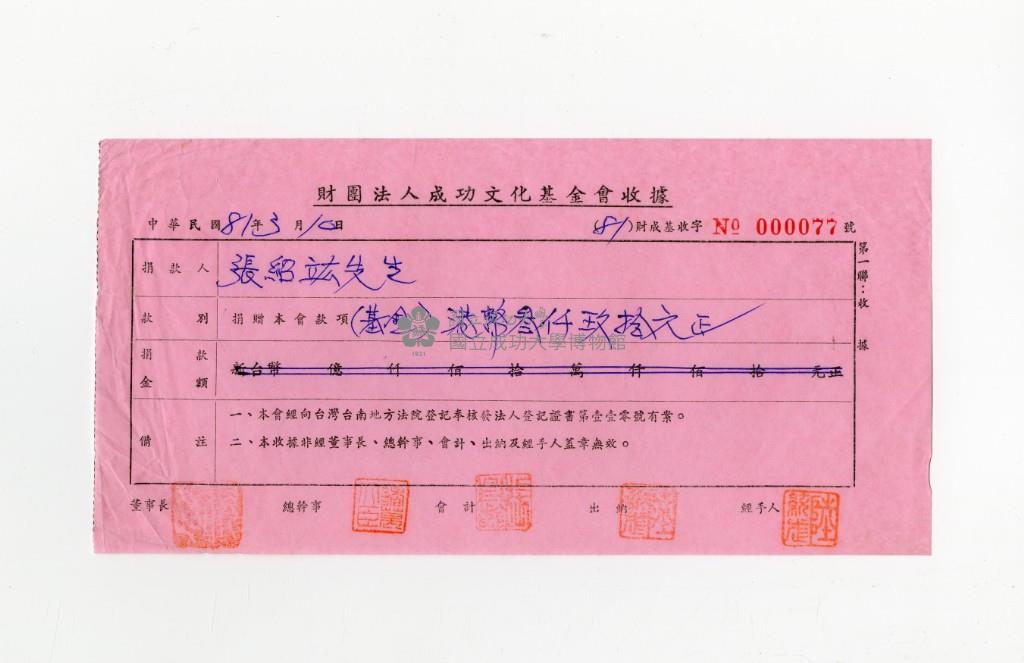 財團法人成功文化基金會收據
中華民國81年3月10日
(81)財成基收字 No 000077 號
捐款人 張紹竑先生
款別 捐贈本會款項(基金) 港幣叁仟玖拾元正
國立成功大學博物館
1931
捐款金額 新台幣 億 仟 佰 拾 萬 仟 佰 拾 元正
備註
一、本會經向台灣台南地方法院登記奉核發法人登記證書第壹壹零號有案。
二、本收據非經董事長、總幹事、會計、出納及經手人蓋章無效。
第一聯：收據
董事長 總幹事 會計 出納 經手人